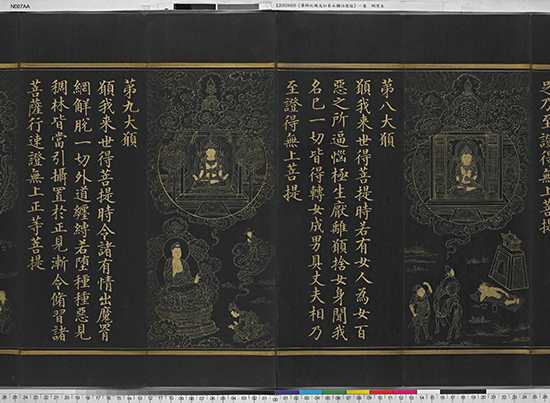 N007AA
乃至證得無上菩提
苐八大願
願我來世得菩提時若有女人為女百
惡之所逼惱極生厭離願捨女身聞我
名已一切皆得轉女成男具丈夫相乃
至證得無上菩提
苐九大願
願我來世得菩提時令諸有情出魔罥
網解脫一切外道纏縛若墮種種惡見
稠林皆當引攝置於正見漸令脩習諸
菩薩行速證無上正等菩提